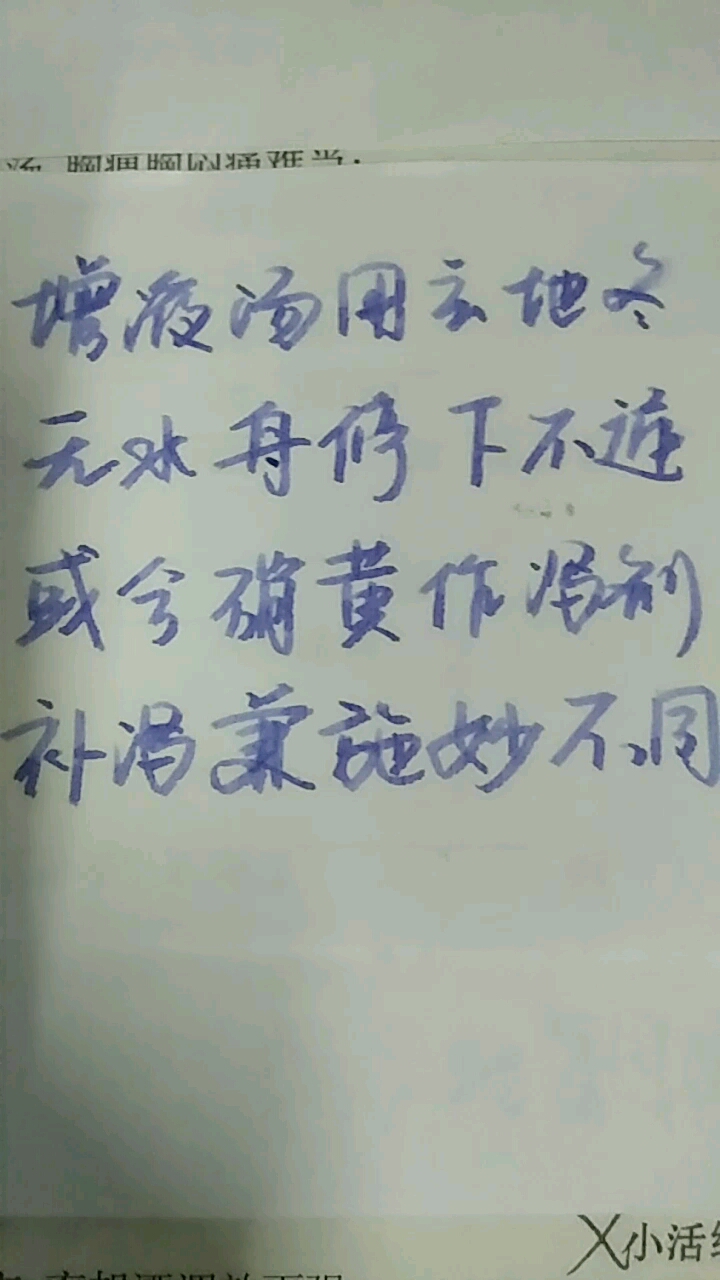 汤 胸痹胸闷痛难当
增液汤用玄地冬
无水舟停下不通
或合硝黄作泻剂
补泻兼施妙不同
X小活络